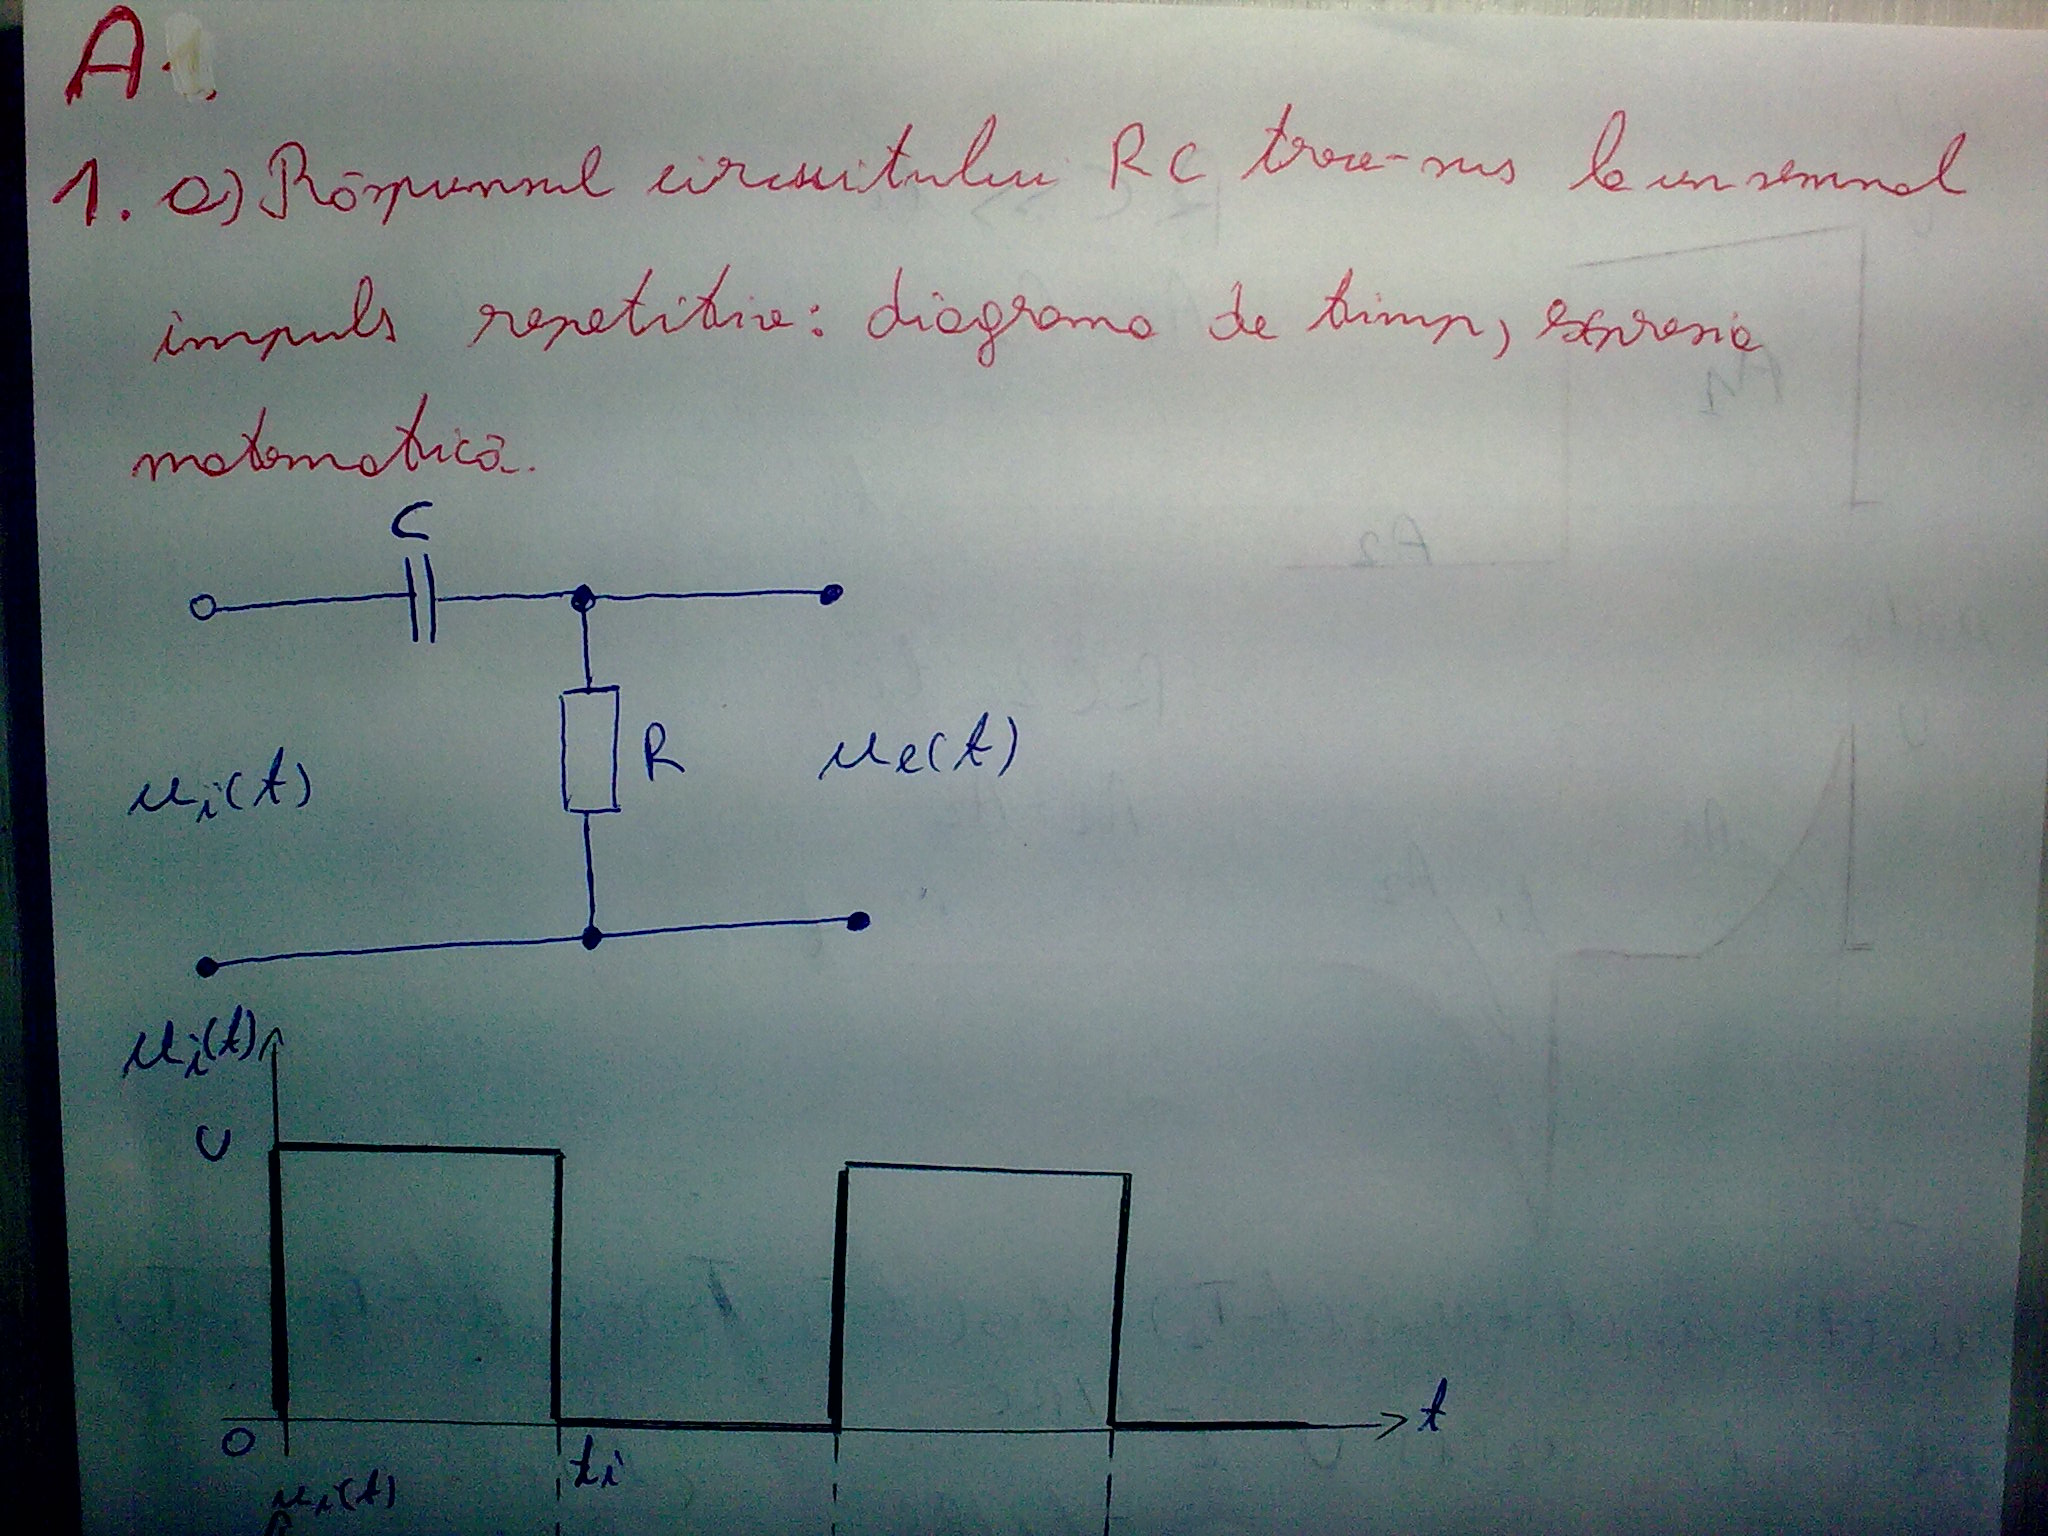 A.
1. a) Răspunsul circuitului RC trece-sus la un semnal
impuls repetitiv: diagrama de timp, expresia
matematică.
C
R
ui(t)
ue(t)
ui(t)
U
0
ti
t
ui(t)